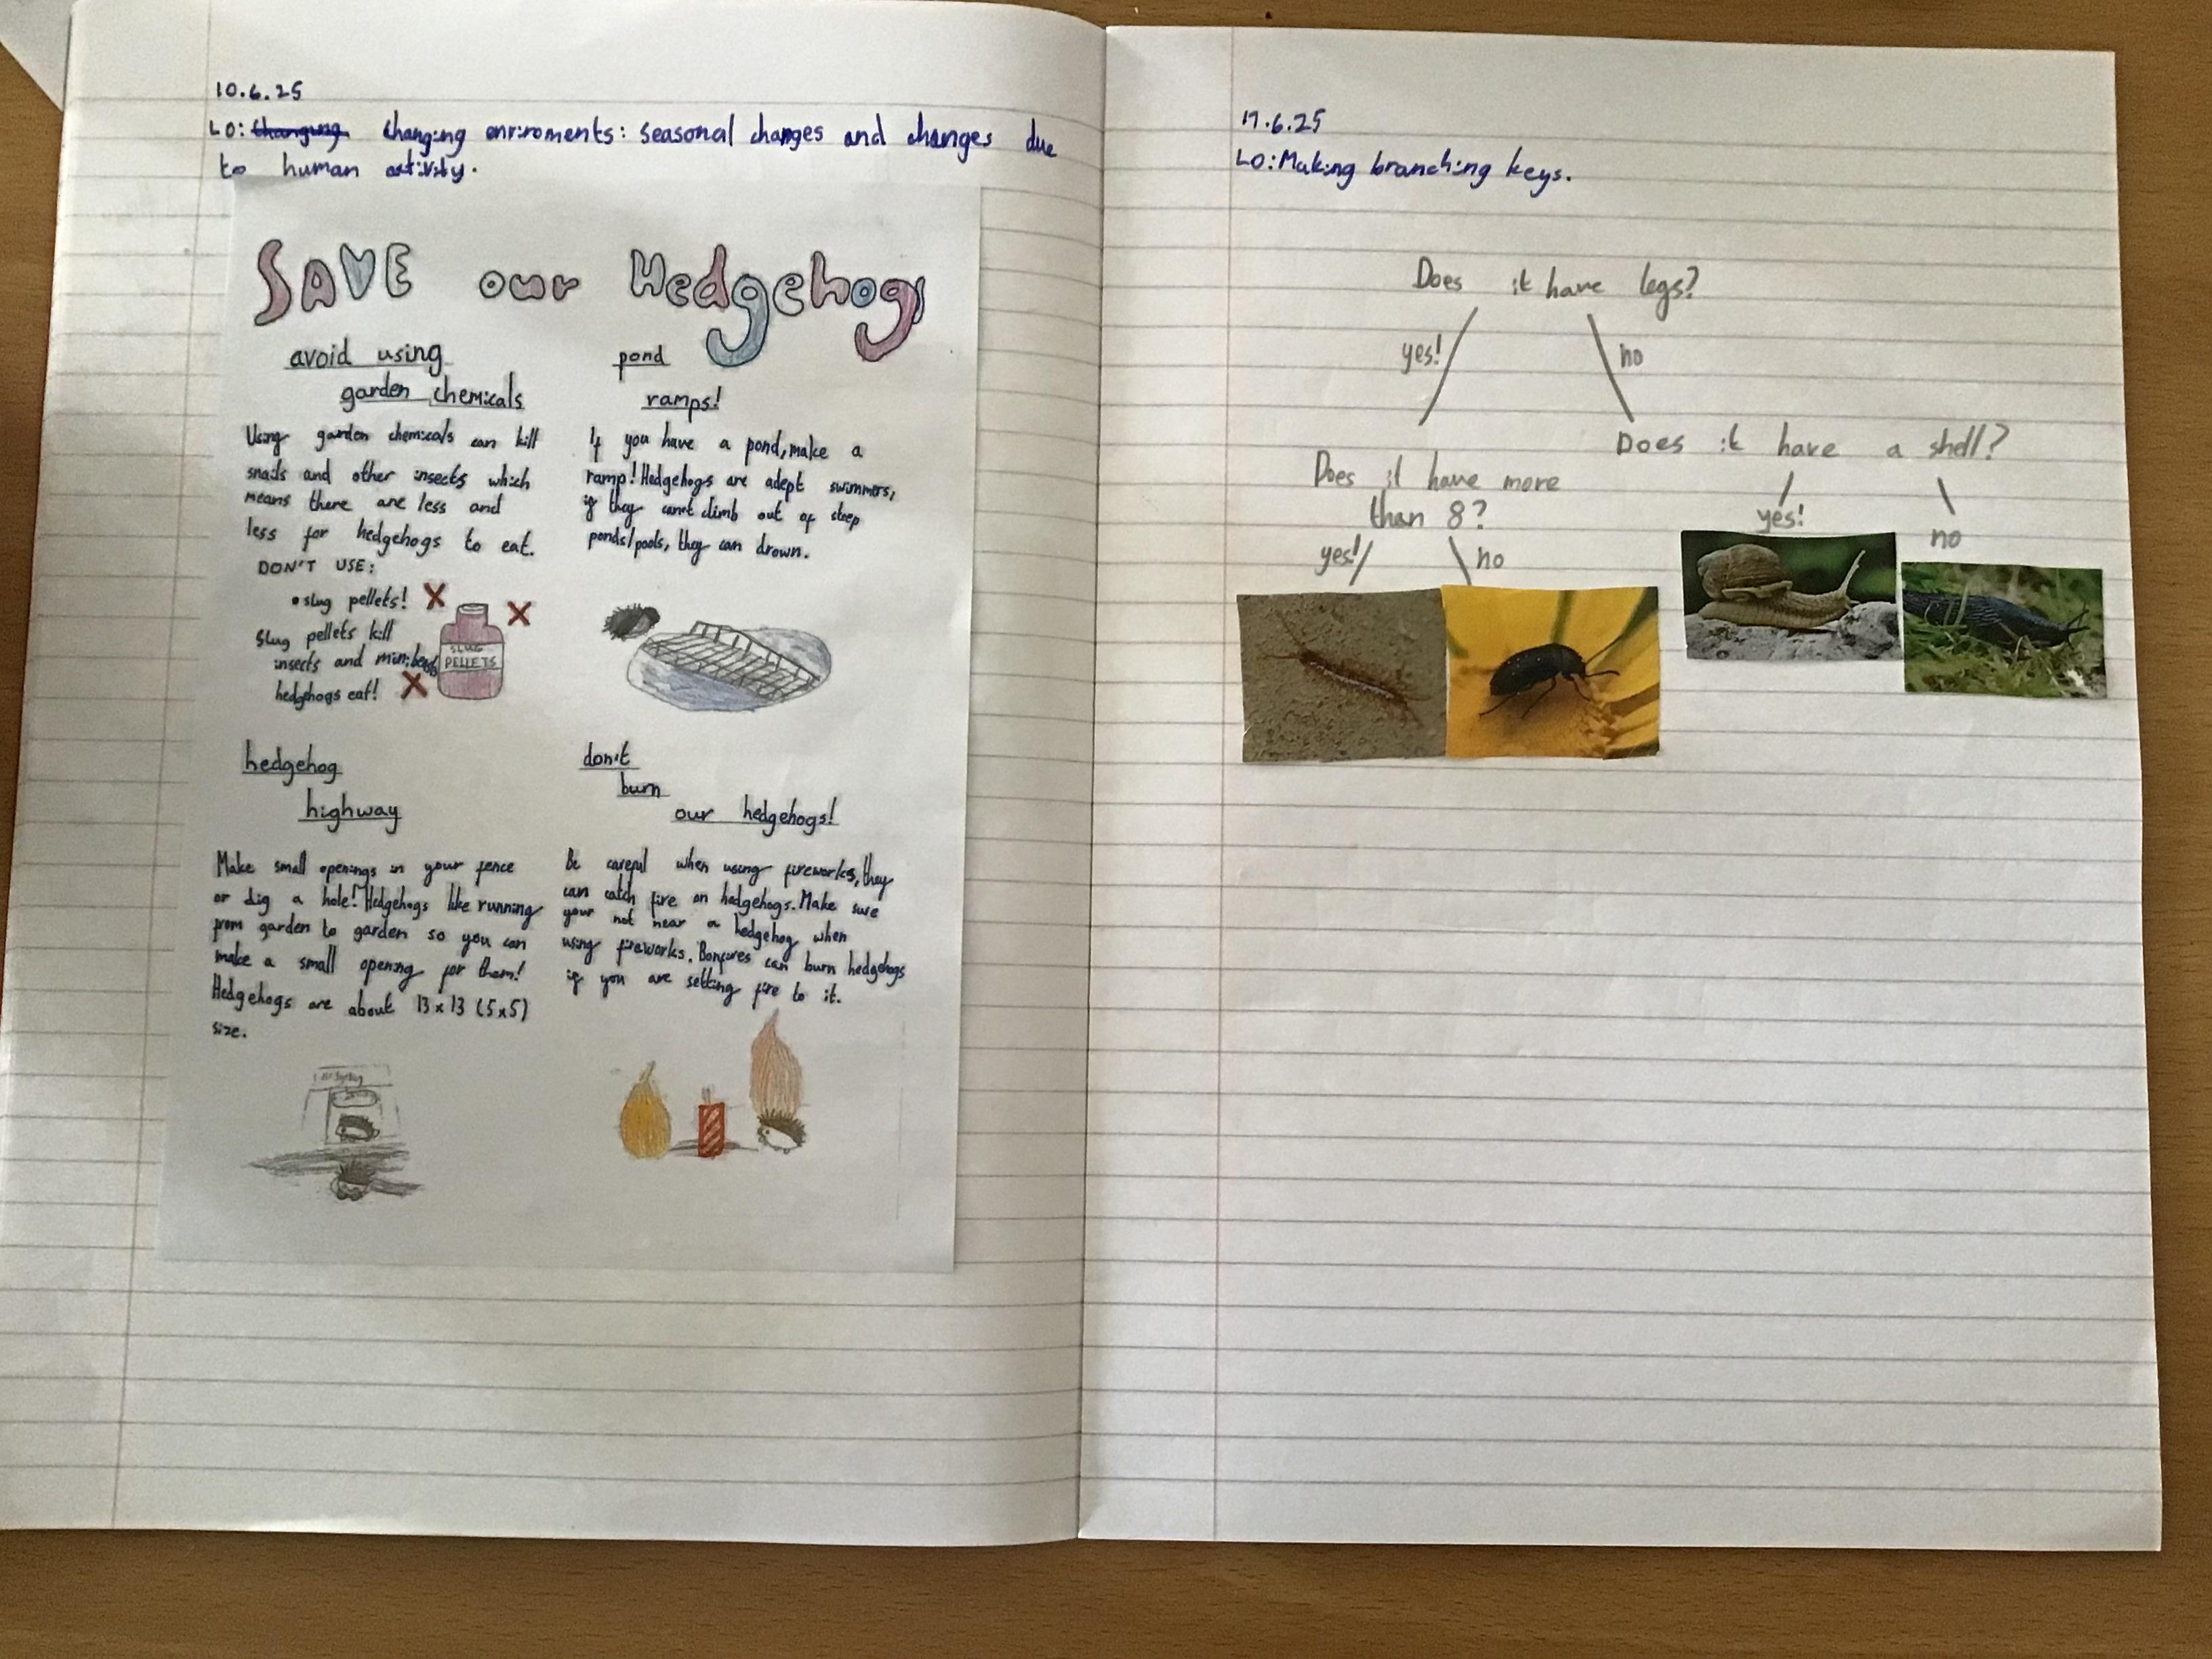 10.6.25
LO: Changing Changing enviroments: seasonal changes and changes due
to human activity.
SAVE our Hedgehogs
avoid using
garden chemicals
Using garden chemicals can kill
snails and other insects which
means there are less and
less for hedgehogs to eat.
DON'T USE:
• slug pellets!
Slug pellets kill
insects and minibeasts
hedgehogs eat!
SLUG
PELLETS
pond
ramps!
If you have a pond, make a
ramp! Hedgehogs are adept swimmers,
if they can't climb out of steep
ponds/pools, they can drown.
hedgehog
highway
Make small openings in your fence
or dig a hole! Hedgehogs like running
from garden to garden so you can
make a small opening for them!
Hedgehogs are about 13 x 13 (5x5)
size.
don't
burn
our hedgehogs!
Be careful when using fireworks, they
can catch fire on hedgehogs. Make sure
your not near a hedgehog when
using fireworks. Bonfires can burn hedgehogs
if you are setting fire to it.
17.6.25
LO: Making branching keys.
Does it have legs?
yes!
no
Does it have a shell?
Does it have more
than 8?
yes!
no
yes!
no